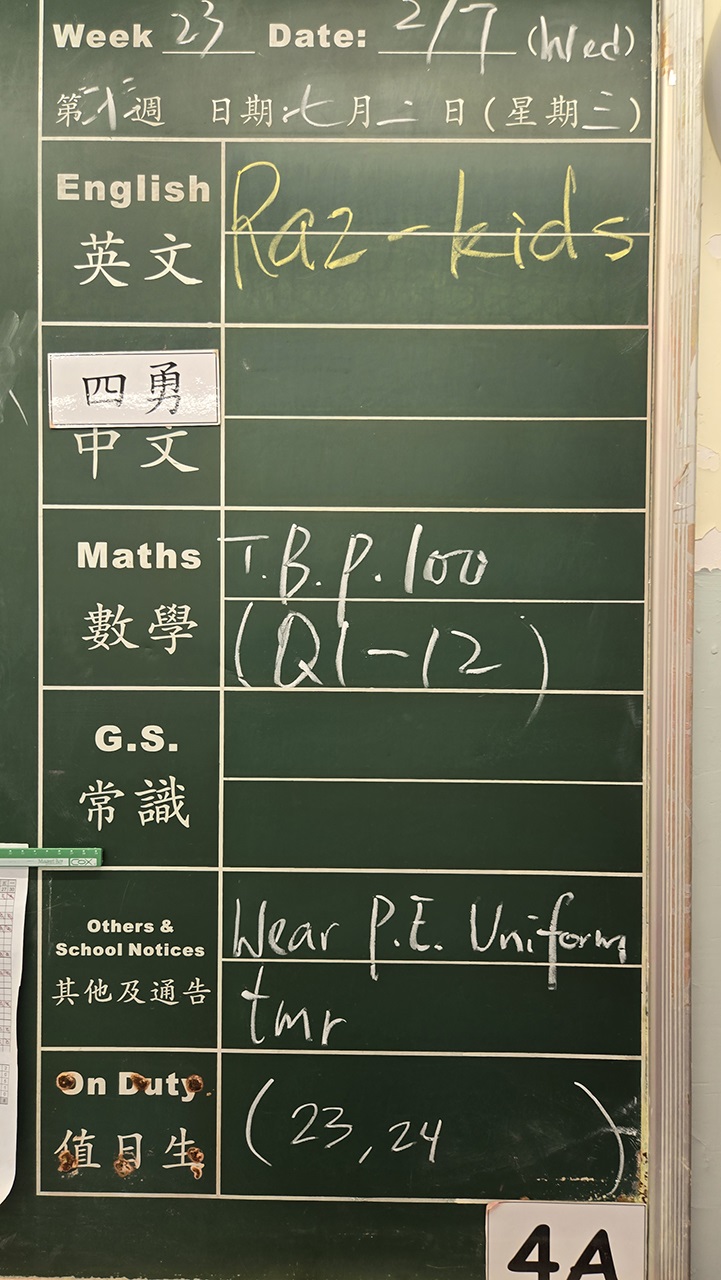 Week 23 Date: 2/7 (Wed)
第 週 日期:七月二日(星期三)
English
英文
Raz-kids
四勇
中文
Maths
數學
T.B.P.100
(Q1-12)
G.S.
常識
COX
Others &
School Notices
其他及通告
Wear P.E. Uniform
tmr
On Duty
值日生
(23,24 )
4A